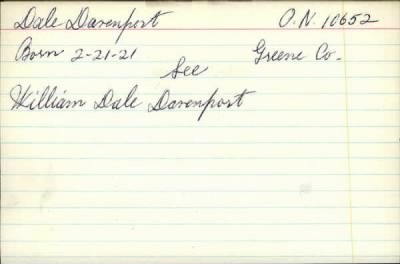 Dale Davenport O.N. 10652
Born 2-21-21 Greene Co.
See
William Dale Davenport